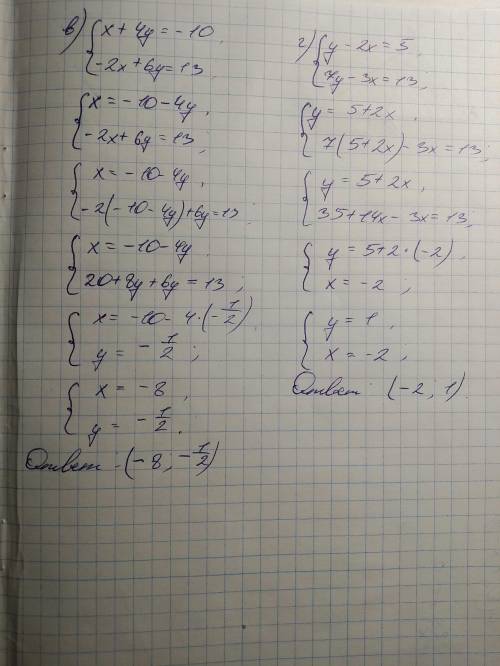 в) { x + 4y = -10,
-2x + 6y = 13
{ x = -10 - 4y,
-2x + 6y = 13,
{ x = -10 - 4y,
-2(-10 - 4y) + 6y = 13
{ x = -10 - 4y
20 + 8y + 6y = 13,
{ x = -10 - 4·(-1/2)
y = -1/2;
{ x = -8,
y = -1/2.
Ответ: (-8; -1/2)
г) { y - 2x = 5,
7y - 3x = 13,
{ y = 5 + 2x,
7(5 + 2x) - 3x = 13;
{ y = 5 + 2x,
35 + 14x - 3x = 13,
{ y = 5 + 2·(-2),
x = -2;
{ y = 1,
x = -2,
Ответ: (-2, 1)